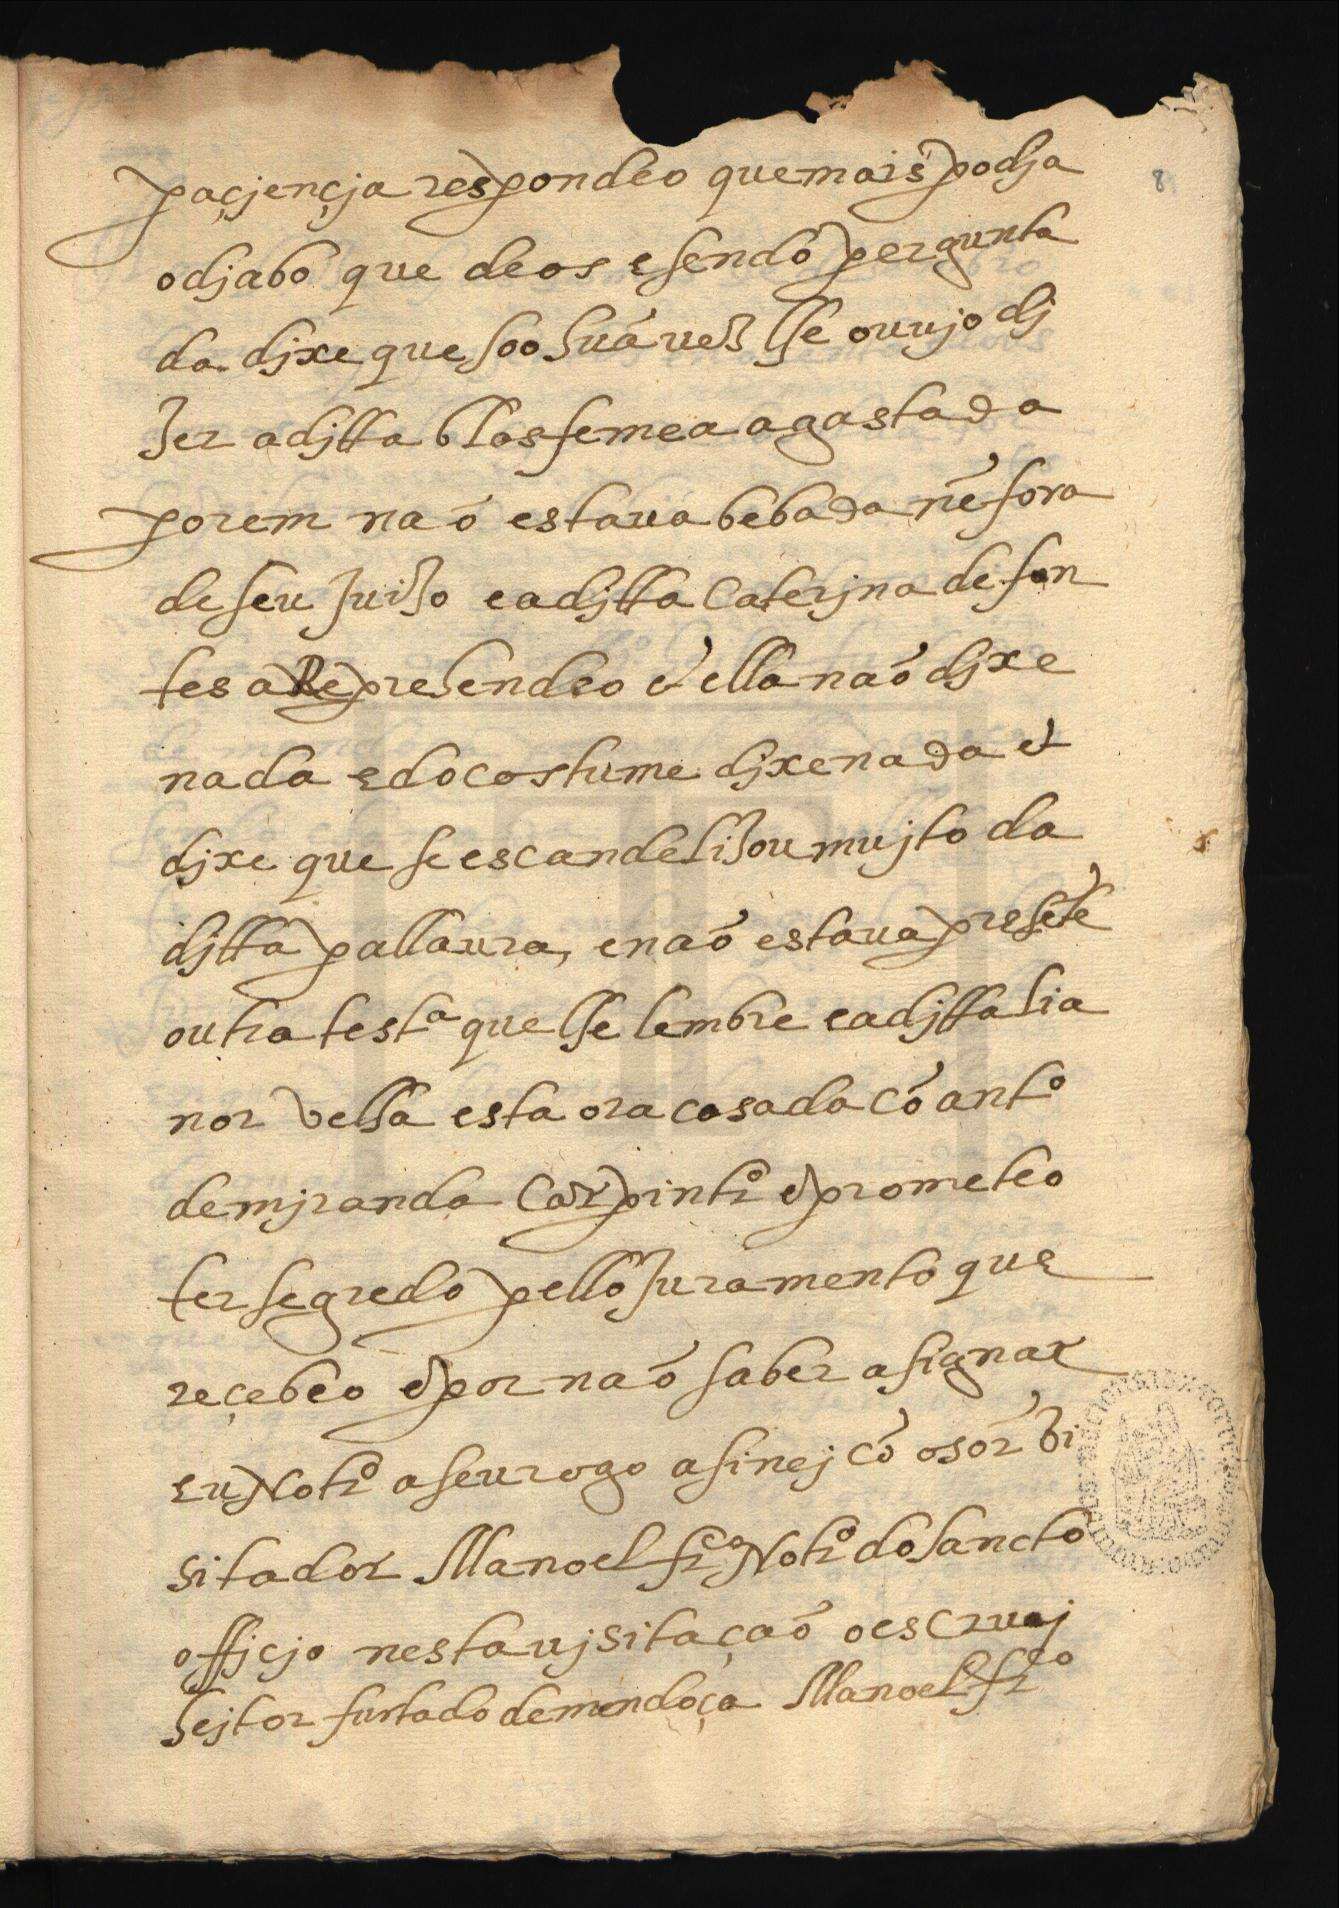 8
paçjençja respondeo que mais podja
o djabo que deos e sendo pergunta
da. djxe que soo hũa vez lhe ouujo dj
zer a djtta blasfemea agastada
porem não estaua bebada nẽ fora
de seu Juizo e a djtta Caterjna de fon
tes a Reprehendeo & ella não djxe
nada e do costume djxe nada &
djxe que se escandelizou mujto da
djtta pallaura, e não estaua presẽte
outra testª que lhe lembre e a djtta lia
nor velha esta ora casada cõ antº
de mjranda Carpintrº e prometeo
ter segredo pello Juramento que
reçebeo e por não saber asignar
eu Notrº a seu rogo asinej cõ o sõr vi
sitador Manoel frcº Notrº do sancto
officjo nesta vjsitação o escrvej
hejtor furtado de mendoça Manoel frcº